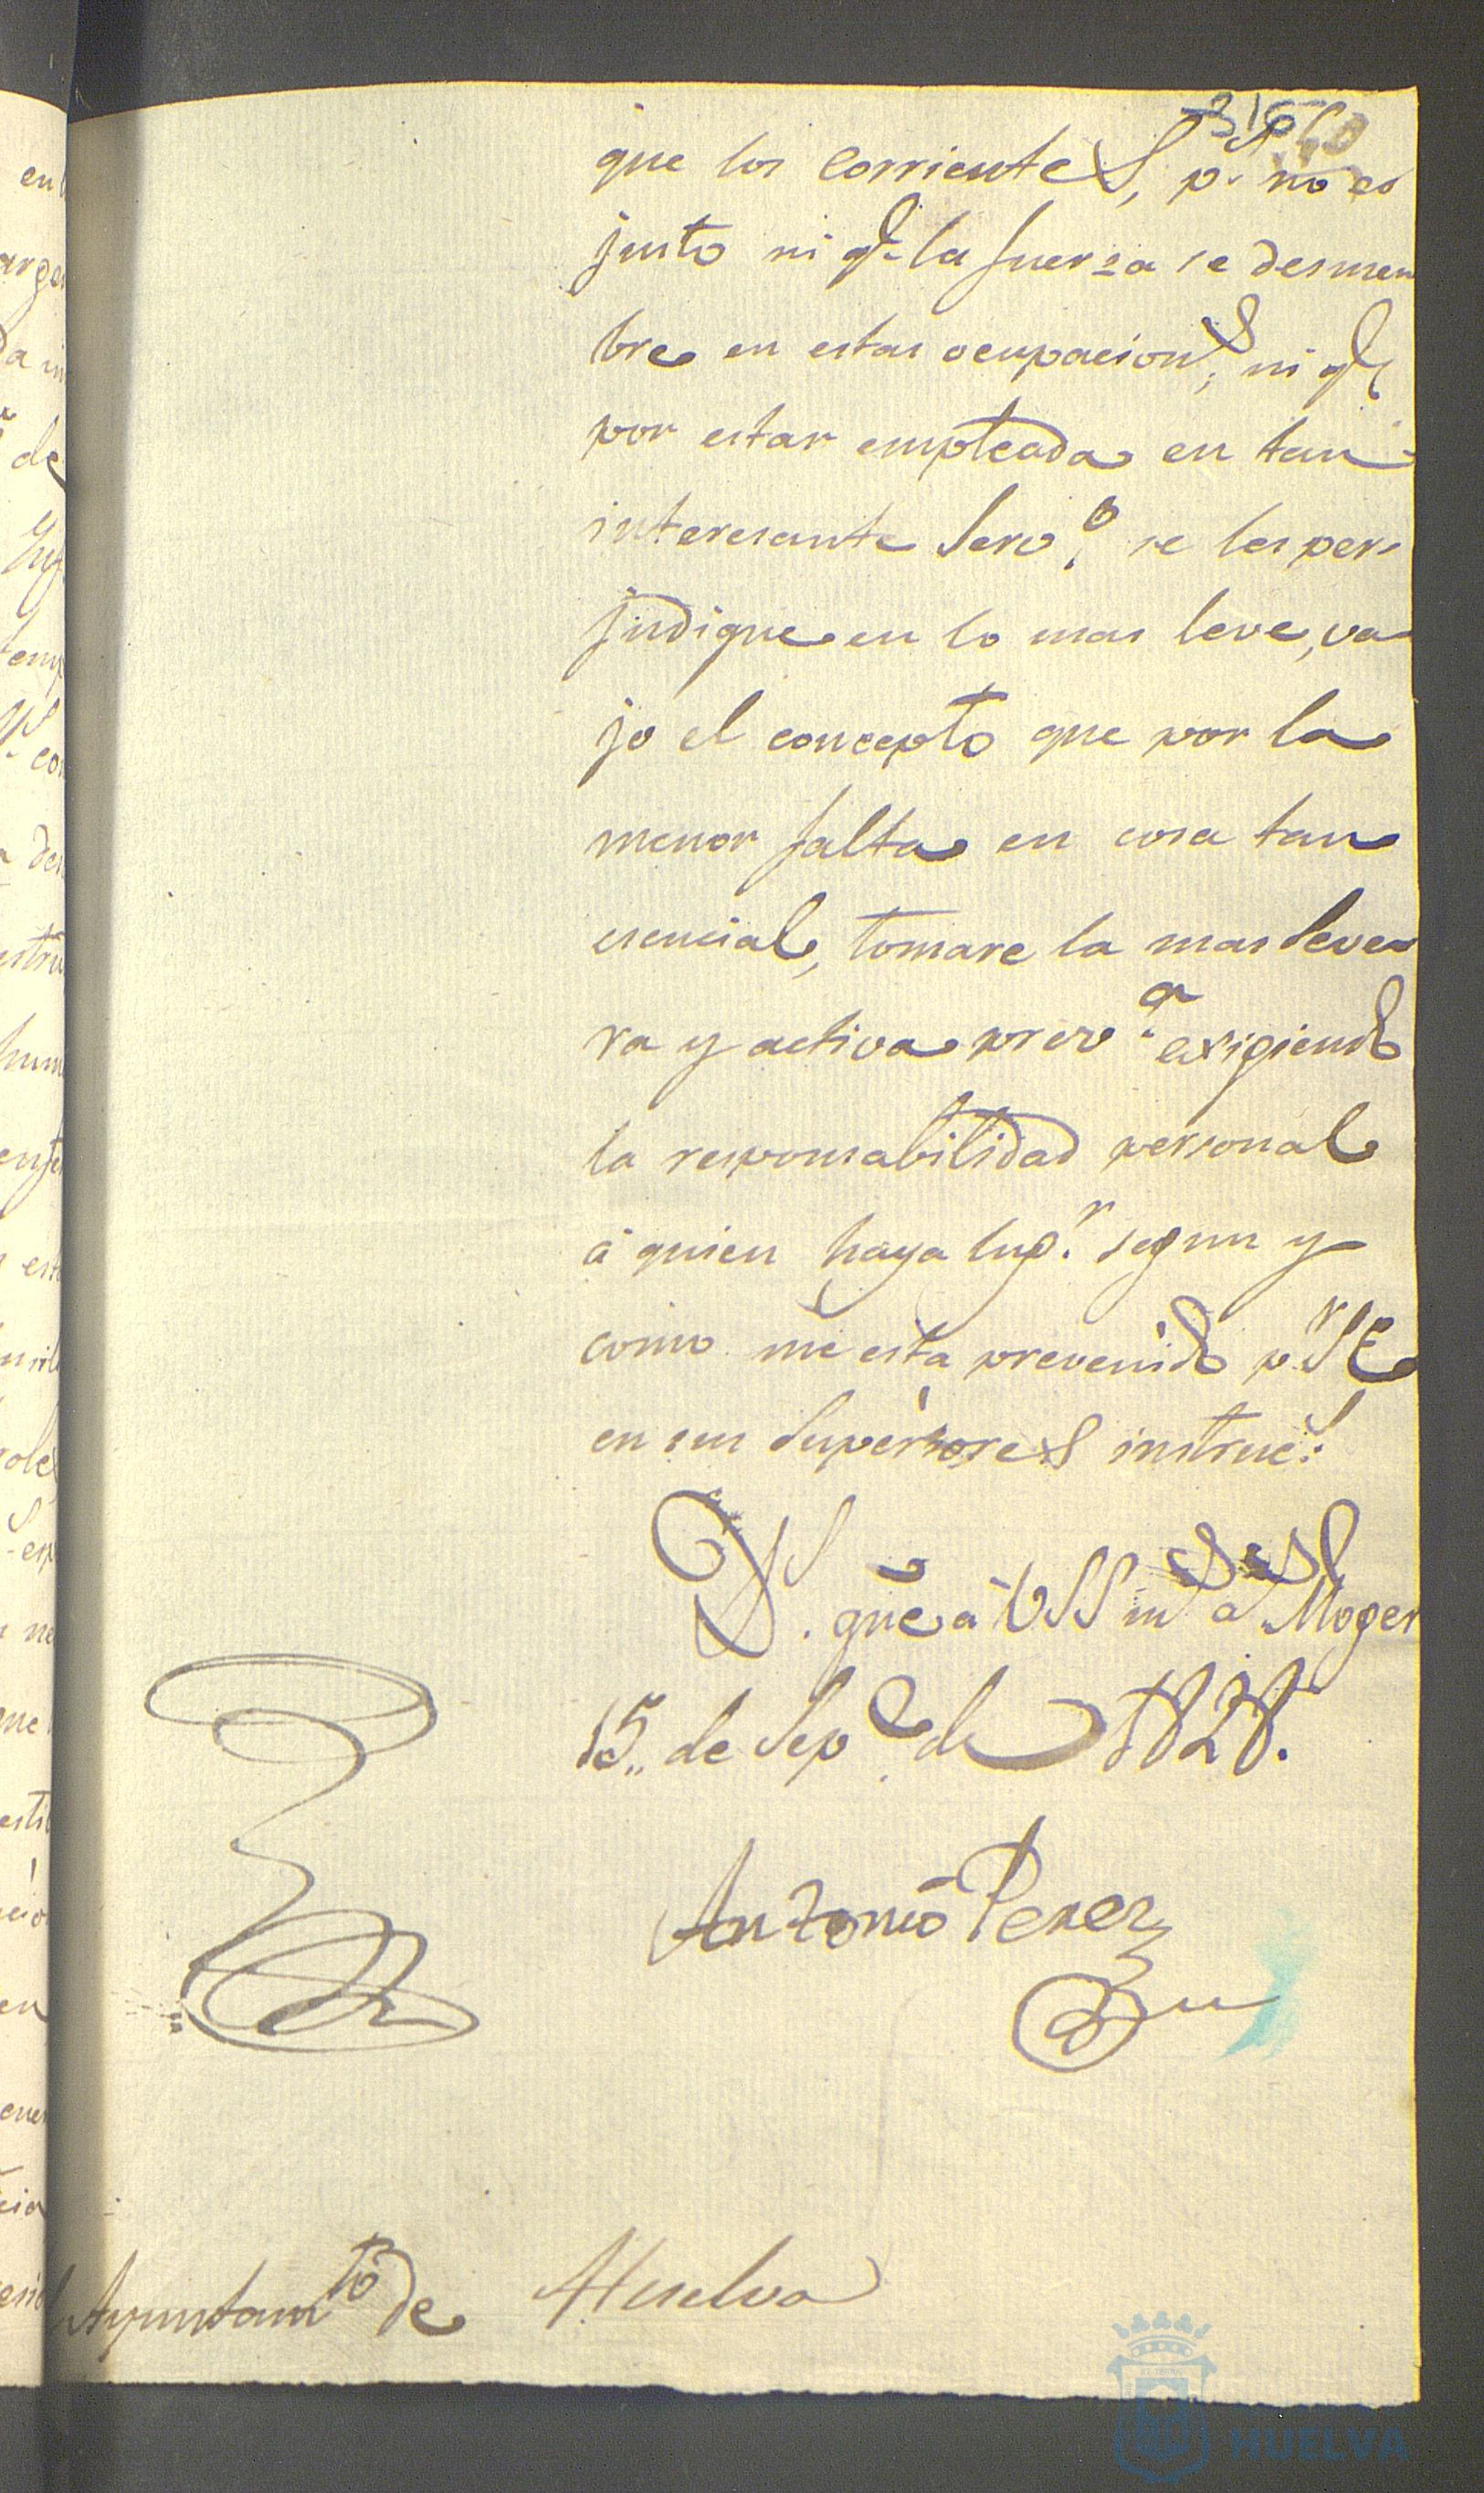 316
que los corrientes, p.s no es
justo ni q.e la fuerza se desmem
bre en estas ocupacion.s, ni q.e
por estar empleada en tan
interesante Serv.o se les per
judique en lo mas leve, va
jo el concepto que por la
menor falta en cosa tan
esencial, tomare la mas Seve
ra y activa prov.a exigiendo
la responsabilidad personal
á quien haya lug.r segun y
como me esta prevenido p.r S E
en sus Superiores instruc.s
D.s gue a VSS m.s a.s Moger
15,, de Sep.e de 1828.
Antonio Perez
Ayuntam.to de Huelva
HUELVA